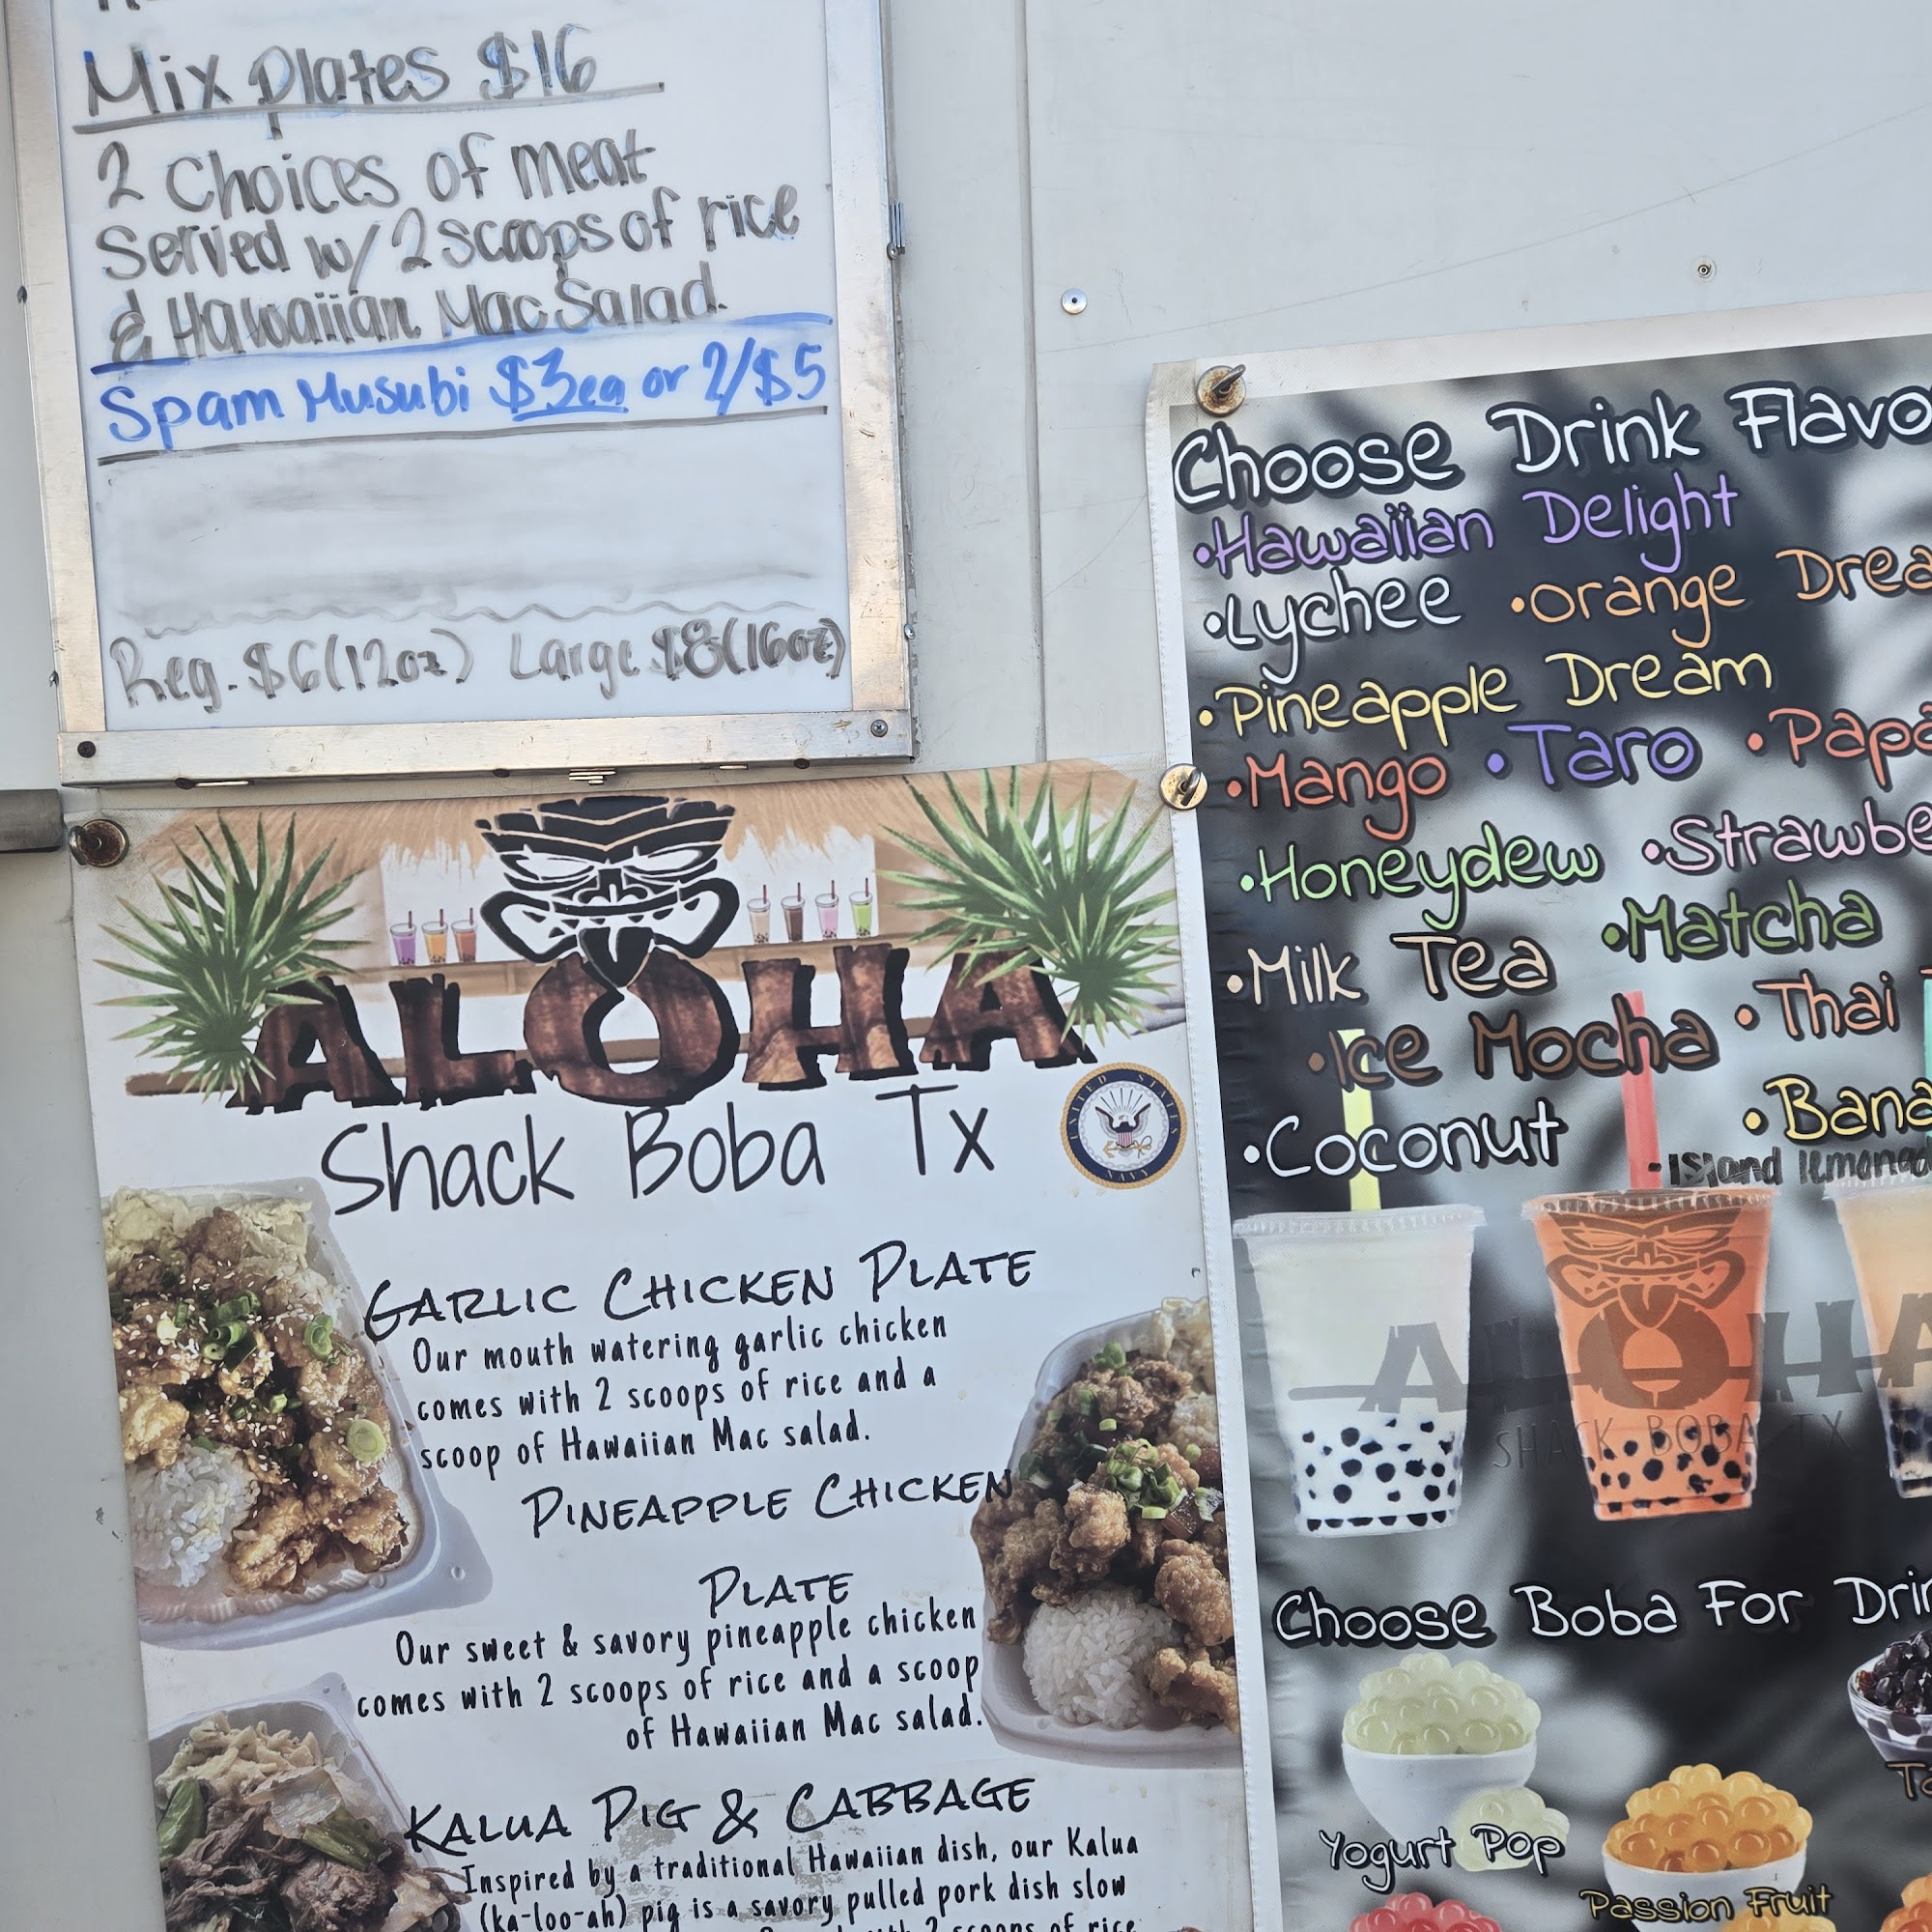 Mix plates $16
2 Choices of meat
Served w/ 2 scoops of rice
& Hawaiian Mac Salad.
Spam Musubi $3ea or 2/$5
Reg. $6(12oz) Large $8(16oz)
ALOHA
Shack Boba Tx
UNITED STATES
NAVY
GARLIC CHICKEN PLATE
Our mouth watering garlic chicken
comes with 2 scoops of rice and a
scoop of Hawaiian Mac salad.
PINEAPPLE CHICKEN
PLATE
Our sweet & savory pineapple chicken
comes with 2 scoops of rice and a scoop
of Hawaiian Mac salad.
KALUA PIG & CABBAGE
Inspired by a traditional Hawaiian dish, our Kalua
(ka-loo-ah) pig is a savory pulled pork dish slow
2 scoops of rice
Choose Drink Flavo
•Hawaiian Delight
•Lychee •Orange Drea
•Pineapple Dream
•Mango •Taro •Papa
•Honeydew •Strawbe
•Milk Tea •Matcha
•Ice Mocha •Thai
•Coconut •Bana
-Island lemonad
ALOHA
SHACK BOBA TX
Choose Boba For Drin
Yogurt Pop
Passion Fruit